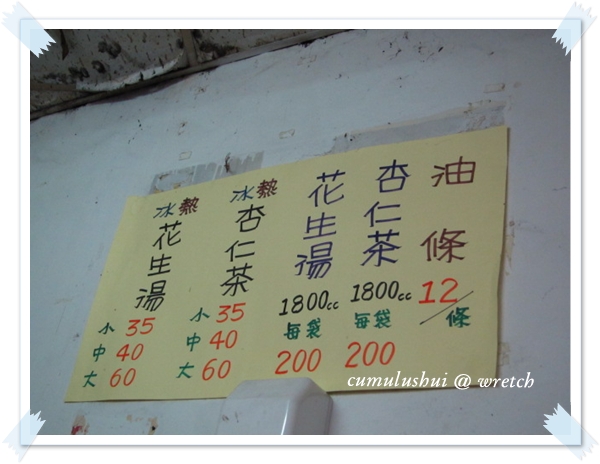 油條
12／條
杏仁茶
1800cc
每袋
200
花生湯
1800cc
每袋
200
冰熱
杏仁茶
小 35
中 40
大 60
冰熱
花生湯
小 35
中 40
大 60
cumulushui @ wretch